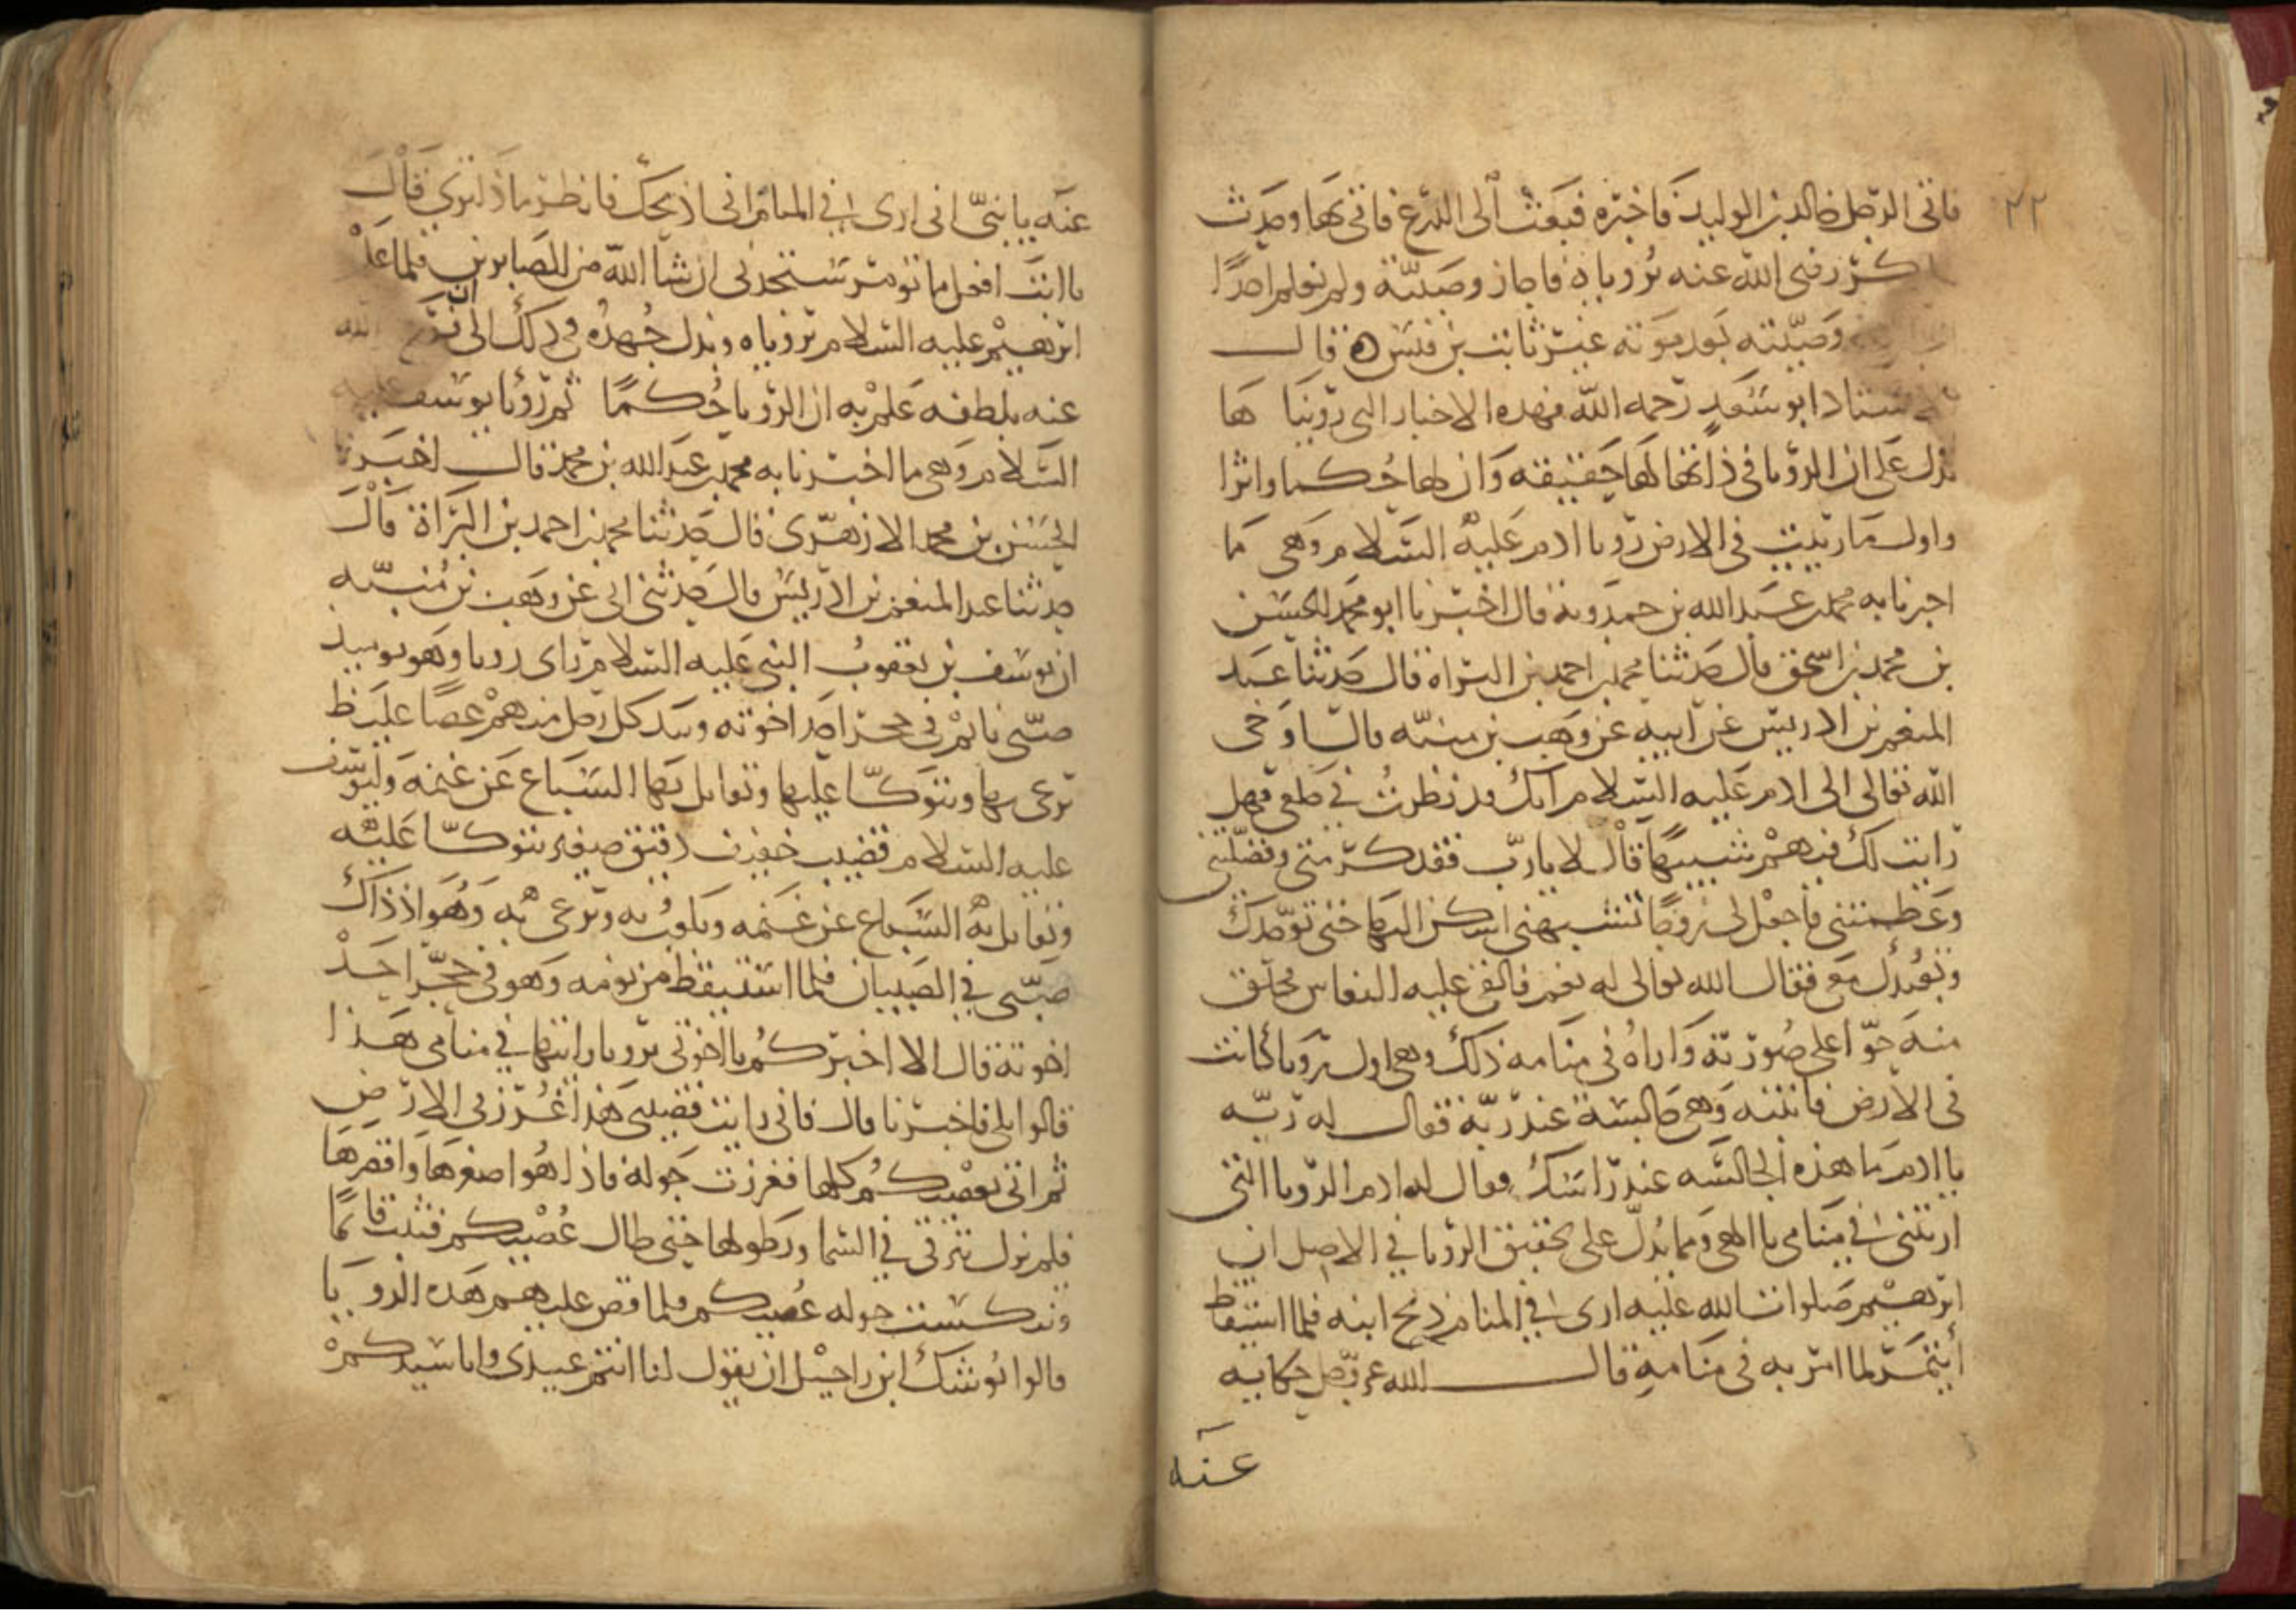 ٢٢
فاتى الرجل خالد بن الوليد فاخبره فبعث الى الدرع فاتى بها وحدث
بكر رضى الله عنه برؤياه فاجاز وصيته ولم نعلم احدًا
وصيته بعد موته غير ثابت بن قيس ه قال
الاستاذ ابو سعد رحمه الله فهذه الاخبار التى رويناها
تدل على ان الرؤيا فى ذاتها لها حقيقه وان لها حكما واثرا
واول ما رئيت فى الارض رويا ادم عليه السلام وهى ما
اخبرنا به محمد بن عبد الله بن حمدويه قال اخبرنا ابو محمد الحسن
بن محمد بن اسحق قال حدثنا محمد بن احمد بن البراة قال حدثنا عبد
المنعم بن ادريس عن ابيه عن وهب بن منبه قال اوحى
الله تعالى الى ادم عليه السلام انك قد نظرت فى خلقى فهل
رايت لك فيهم شبيها قال لا يا رب فقد كرمتنى وفضلتنى
وعظمتنى فاجعل لى زوجا تشبهنى اسكن اليها حتى توحدك
وتعبدك معى فقال الله تعالى له نعم فالقى عليه النعاس فخلق
منه حوا على صورته واراه فى منامه ذلك وهى اول رويا كانت
فى الارض فانتبه وهى جالسة عند ربه فقال له ربه
يا ادم ما هذه الجالسه عند راسك فقال له ادم الرويا التى
اريتنى فى منامى يا الهى ومما يدل على تحقيق الرؤيا فى الاصل ان
ابرهيم صلوات الله عليه ارى فى المنام ذبح ابنه فلما استيقظ
أيتمر لما امر به فى منامه قال الله عز وجل حكاية
عنه
عنه يا بنى انى ارى فى المنام انى اذبحك فانظر ماذا ترى قال
يا ابت افعل ما تومر ستجدنى ان شا الله من الصابرين فلما علم
ابرهيم عليه السلام برؤياه وبذل جهده فى ذلك الى ان فرج الله
عنه بلطفه علم به ان الرؤيا حكمًا ثم رؤيا يوسف عليه
السلام وهى ما اخبرنا به محمد بن عبد الله بن محمد قال اخبرنا
الحسن بن محمد الازهرى قال حدثنا محمد بن احمد بن البراة قال
حدثنا عبد المنعم بن ادريس قال حدثنى ابى عن وهب بن منبه
ان يوسف بن يعقوب النبى عليه السلام راى رويا وهو يوميذ
صبى نايم فى حجر احد اخوته وبيد كل رجل منهم عصا غليظ
يرعى بها ويتوكا عليها ويقاتل بها السباع عن غنمه وليوسف
عليه السلام قضيب خفيف دقيق صغير يتوكا عليه
ويقاتل به السباع عن غنمه ويلعب به ويرعى به وهو اذ ذاك
صبى فى الصبيان فلما استيقظ من نومه وهو فى حجر احد
اخوته قال الا اخبركم يا اخوتى برويا رايتها فى منامى هذا
قالوا بلى فاخبرنا قال فانى رايت قضيبى هذا غرز فى الارض
ثم اتى بعصيكم كلها فغرزت حوله فاذا هو اصغرها واقصرها
فلم يزل يترقى فى السما ويطولها حتى طال عصيكم فثبت قائما
حوله عصيكم فلما قص عليهم هذه الرويا
قالوا يوشك ابن راحيل ان يقول لنا انتم عبيدى وانا سيدكم